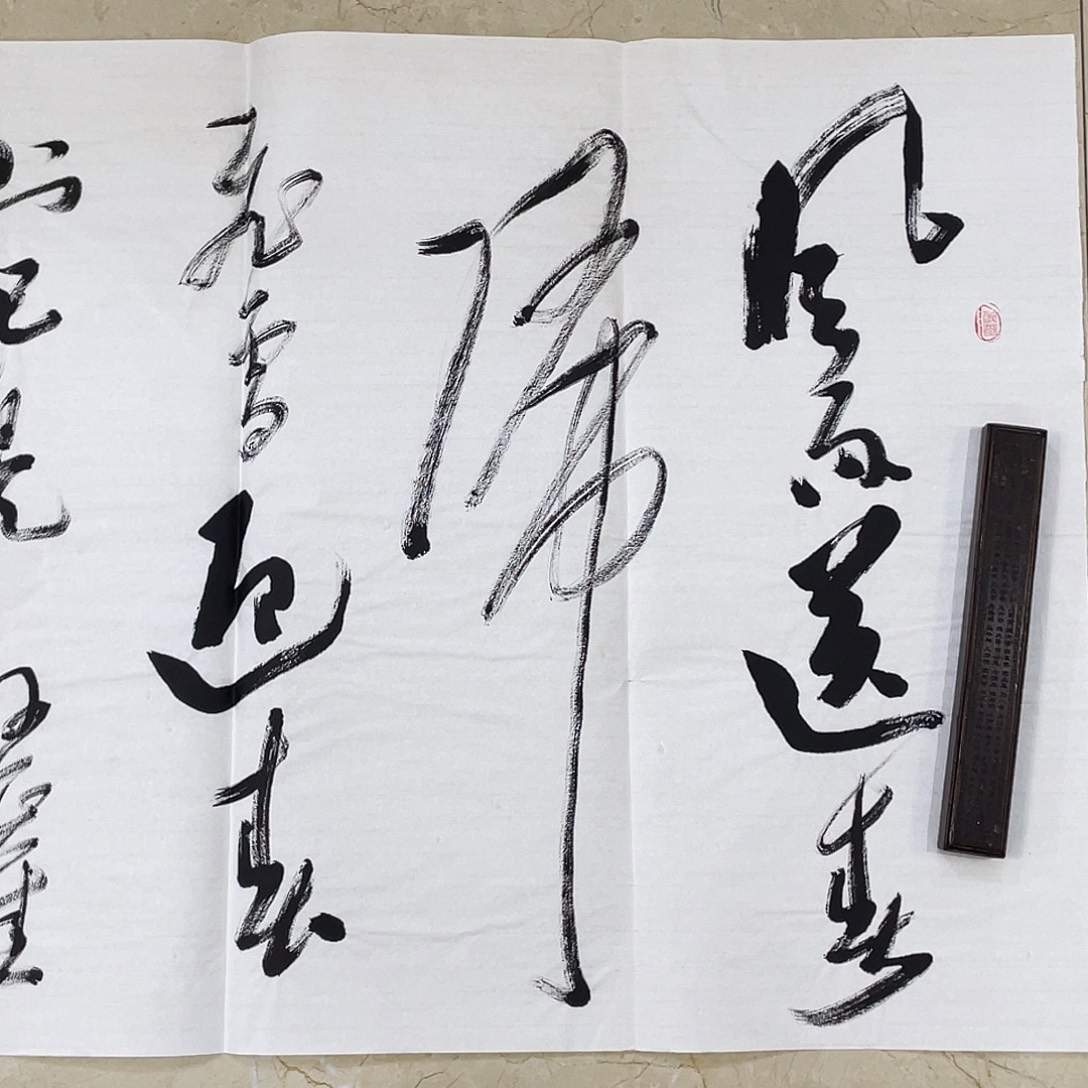 風雨送春
歸
飛雪迎春
到已是